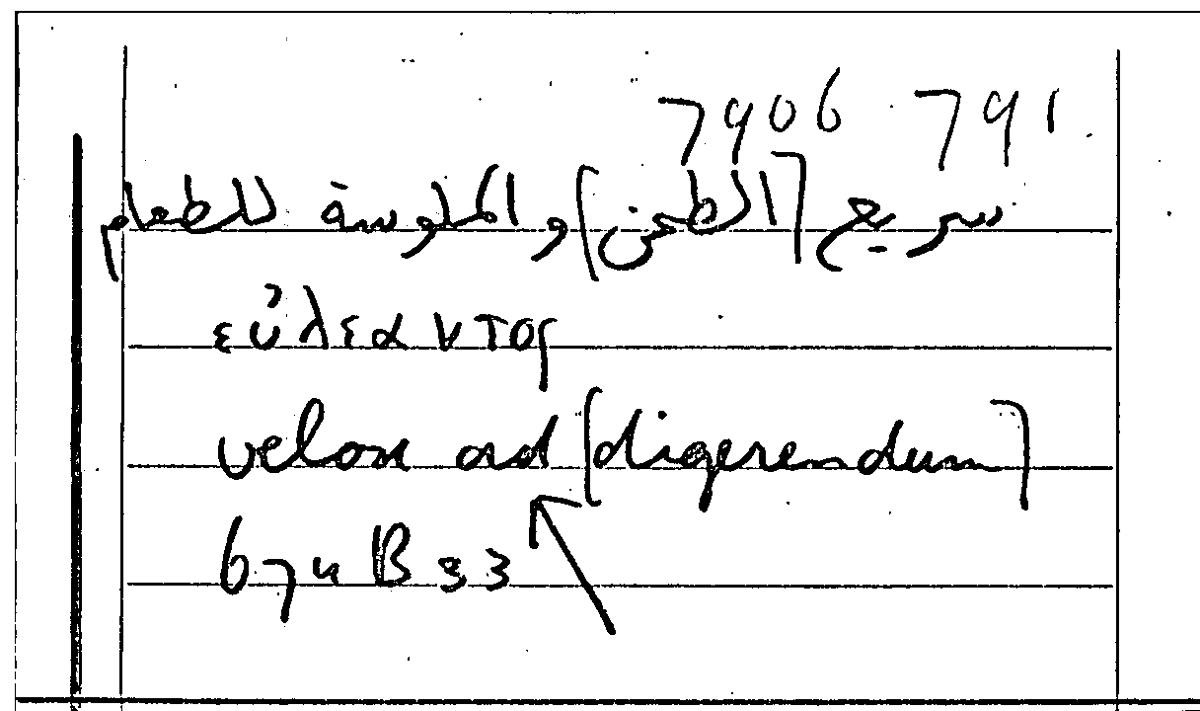 7906 791
سريع [الطحن] والملوسة للطعام
εὐλεαντος
velox ad [digerendum]
674 B 33